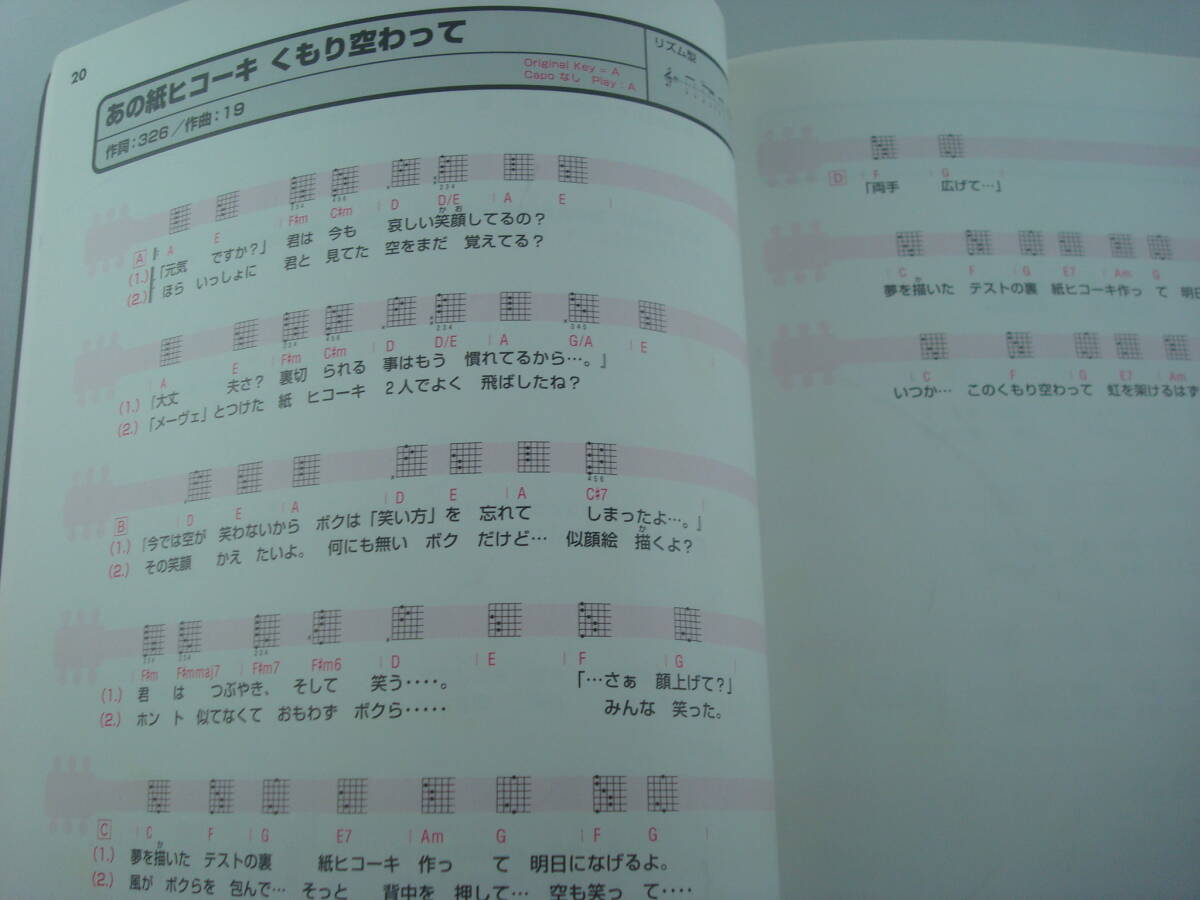 20
あの紙ヒコーキ くもり空わって
作詞：326／作曲：19
Original Key = A
Capo なし Play : A
リズム型
A E F#m C#m D D/E A E
A
(1.) 「元気 ですか？」 君は 今も 哀しい笑顔してるの？
かお
(2.) ほら いっしょに 君と 見てた 空をまだ 覚えてる？
A E F#m C#m D D/E A G/A E
(1.) 「大丈 夫さ？ 裏切 られる 事はもう 慣れてるから…。』
(2.) 「メーヴェ」とつけた 紙 ヒコーキ 2人でよく 飛ばしたね？
D E A D E A C#7
B
(1.) 『今では空が 笑わないから ボクは「笑い方」を 忘れて しまったよ…。』
(2.) その笑顔 かえ たいよ。 何にも無い ボク だけど… 似顔絵 描くよ？
か
F#m F#mmaj7 F#m7 F#m6 D E F G
(1.) 君 は つぶやき、 そして 笑う‥‥。 「…さぁ 顔上げて？」
(2.) ホン ト 似てなくて おもわず ボクら‥‥‥ みんな 笑った。
C
C F G E7 Am G F G
(1.) 夢を描いた テストの裏 紙ヒコーキ 作っ て 明日になげるよ。
か
(2.) 風が ボクらを 包んで… そっと 背中を 押して… 空も笑っ て‥‥
D
F G
「両手 広げて…」
C F G E7 Am G
夢を描いた テストの裏 紙ヒコーキ作っ て 明日
か
C F G E7 Am
いつか… このくもり空わって 虹を架けるはず